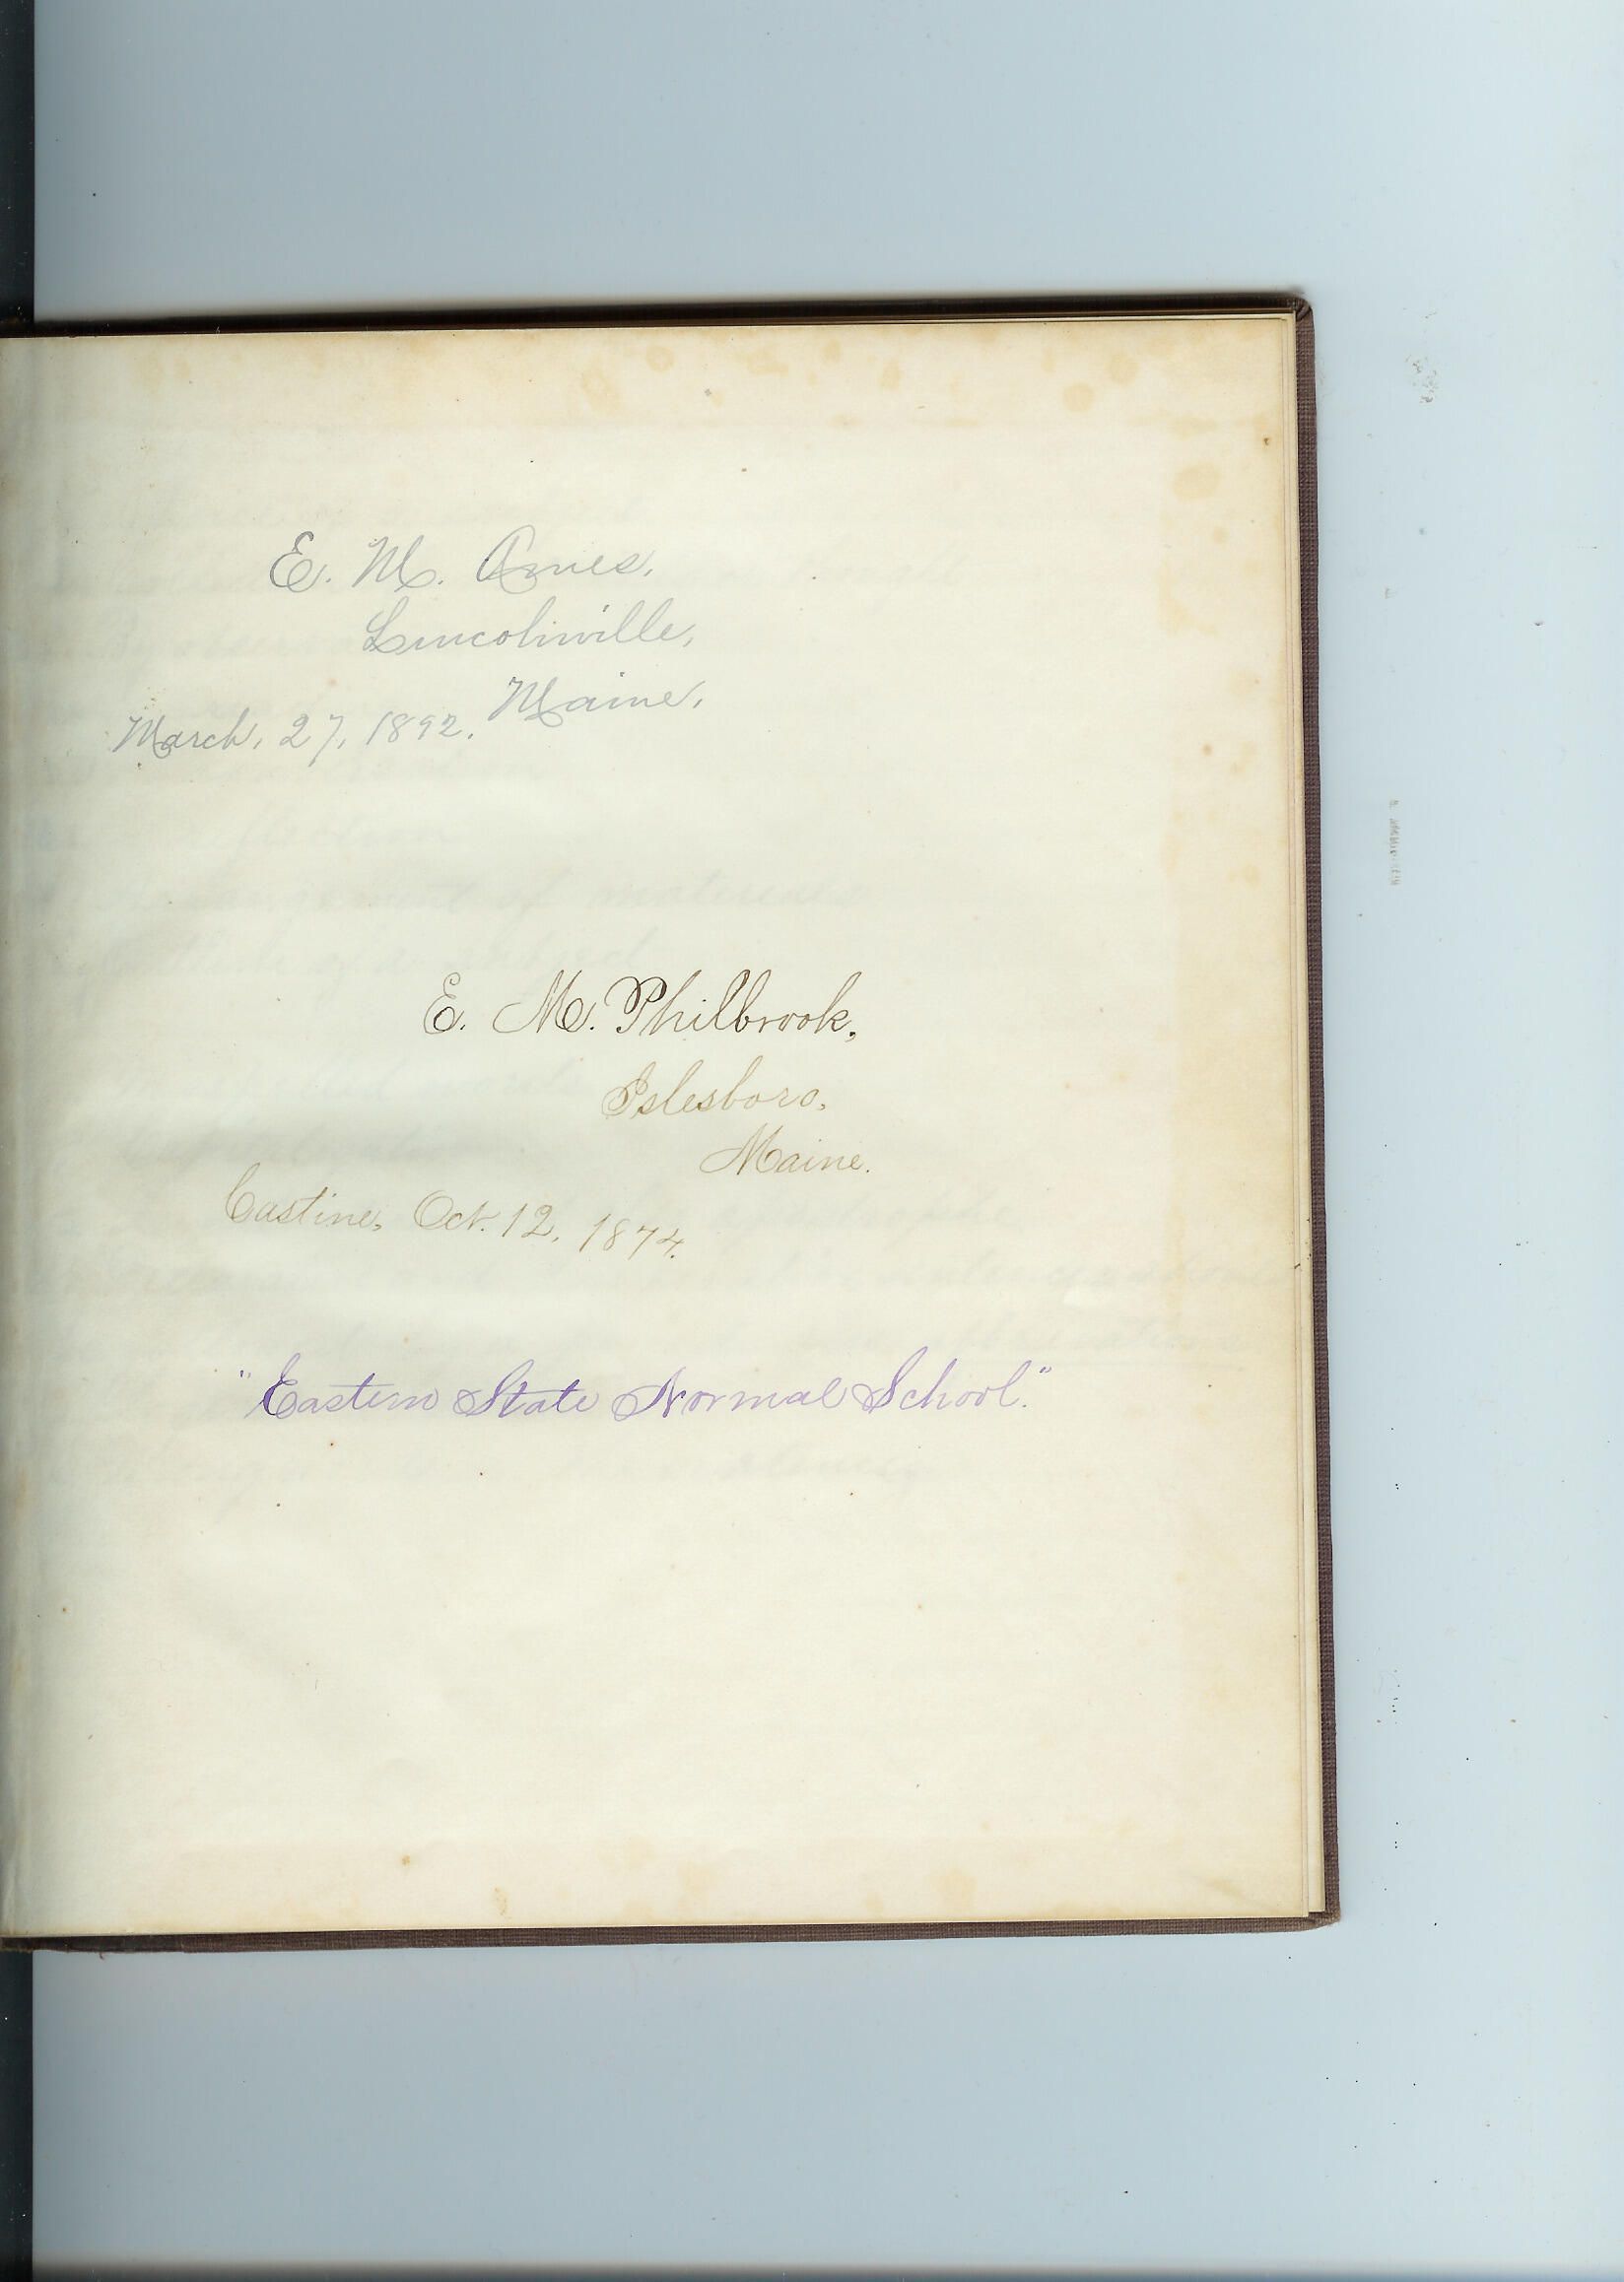 E. M. Ames.
Lincolnville,
Maine.
March. 27, 1892.
E. M. Philbrook,
Islesboro,
Maine.
Castine, Oct. 12, 1874.
"Eastern State Normal School."